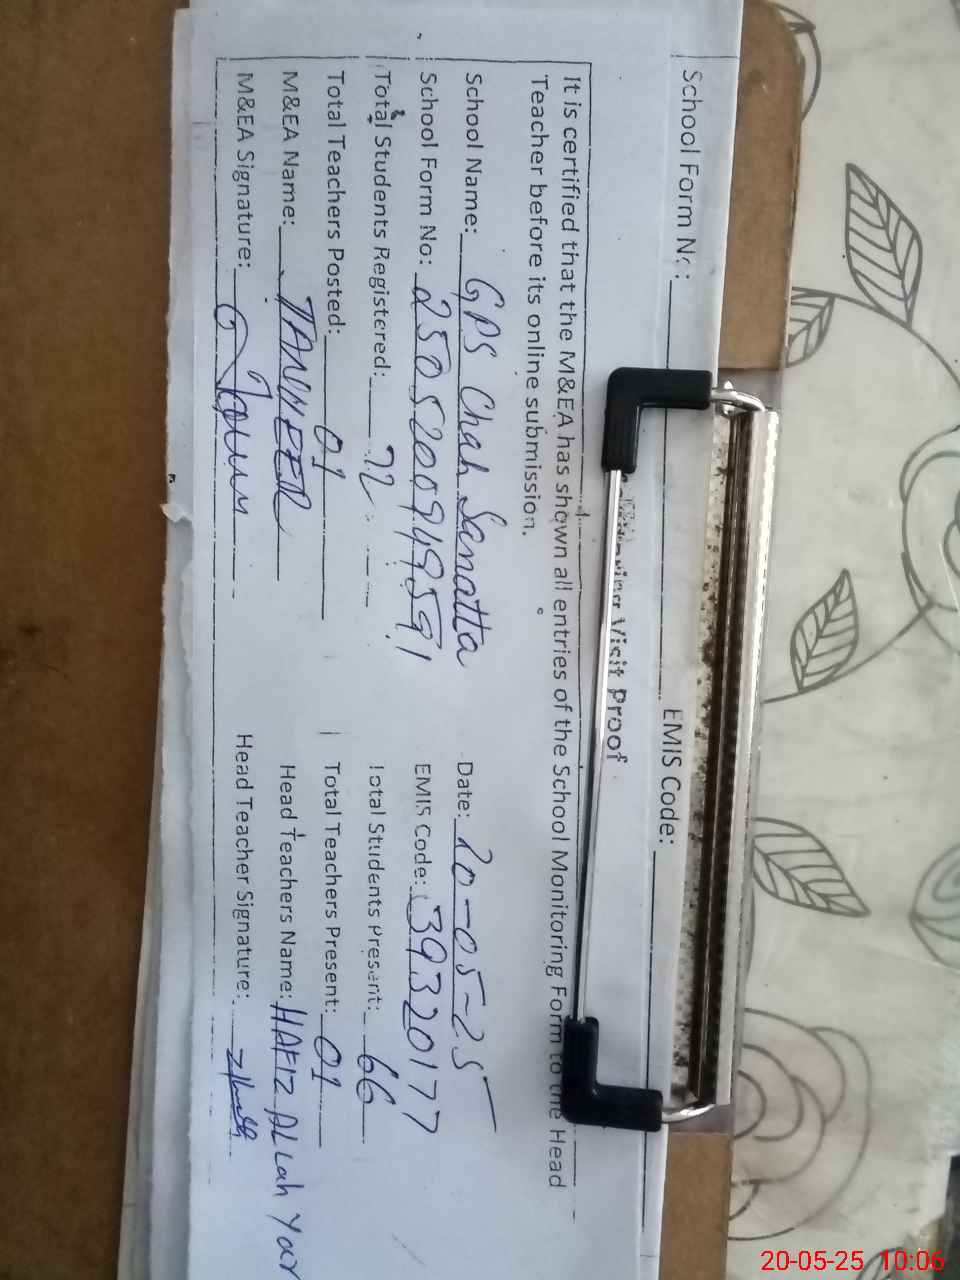 School Form No: EMIS Code:
Monitoring Visit Proof
It is certified that the M&EA has shown all entries of the School Monitoring Form to the Head
Teacher before its online submission.
School Name: GPS Chah Sanatta Date: 20-05-25
School Form No: 2505200949591 EMIS Code: 39320177
Total Students Registered: 72 Total Students Present: 66
Total Teachers Posted: 01 Total Teachers Present: 01
M&EA Name: TANVEER Head Teachers Name: HAFIZ ALLah Yar
M&EA Signature: Head Teacher Signature:
20-05-25 10:06